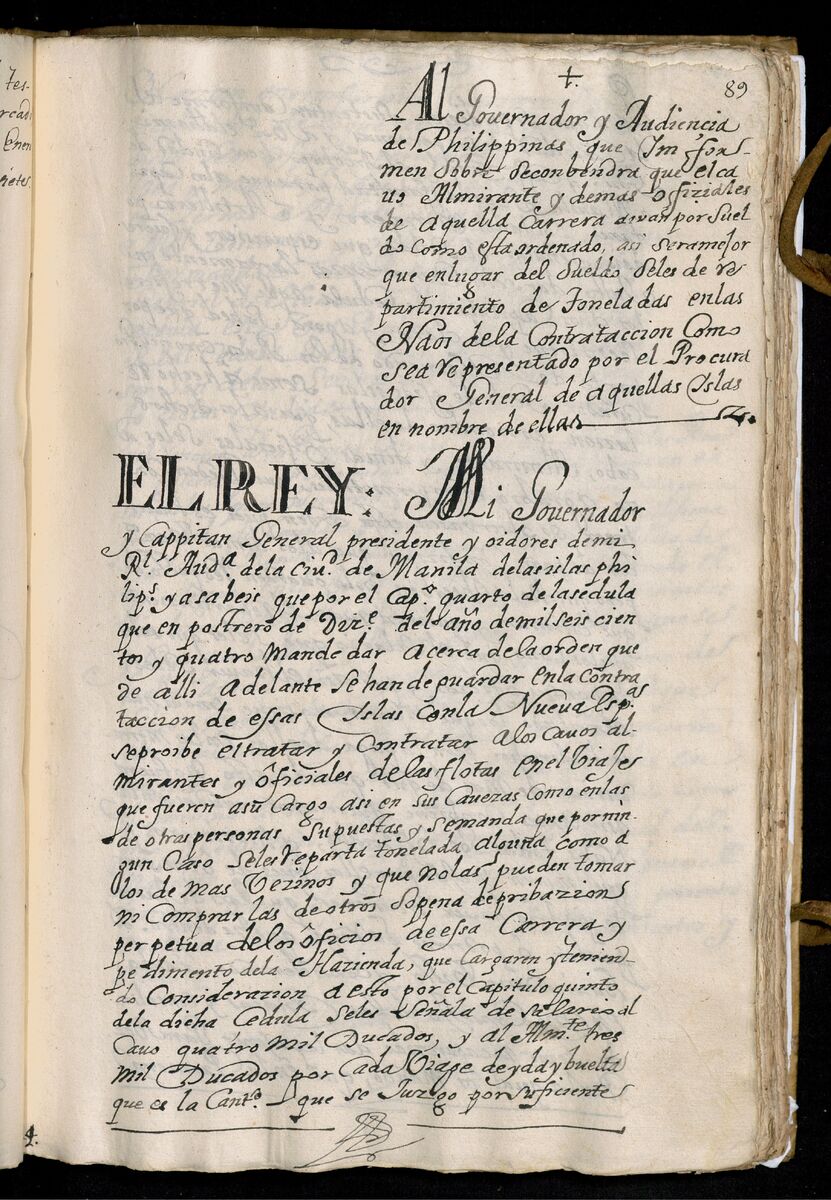 tes-
rcad
enen
rietes.
+.
89
Al Governador y Audiencia
de Philippinas que Imfor-
men sobre seconbendra que el ca
uo Almirante y demas ofiziales
de aquella Carrera aivan por suel
do como esta ordenado, asi sera mejor
que en lugar del sueldo seles de re
partimiento de Toneladas en las
Naos de la Contrataccion Como
sea representado por el Procura
dor General de aquellas Islas
en nombre de ellas
EL REY: Mi Governador
y Cappitan General presidente y oidores de mi
Rl. Auda. de la ciud. de Manila de las islas phi
lips. ya sabeis que por el Capo. quarto de la sedula
que en postrero de Dize. del año de mil seis cien
tos y quatro mande dar acerca de la orden que
de alli adelante se han de guardar en la contra
taccion de essas Islas con la Nueva Espas
se proibe el tratar y contratar a los cavos al-
mirantes y oficiales de las flotas en el viaje
que fueren asu cargo asi en sus cavezas como en las
de otras personas supuestas y se manda que por nin-
gun caso seles reparta tonelada alguna como a
los de mas vezinos y que no las pueden tomar
ni comprar las de otros so pena de pribazion
perpetua de los oficios de essa Carrera y
perdimento de la Hazienda, que cargaren y temien-
do Considerazion a esto por el Capitulo quinto
de la dicha Cedula seles señala de salario al
Cavo quatro mil Ducados, y al Almte. tres
mil Ducados por cada viage de yda y buelta
que es la Cantd. que se Juzgo por suficiente
4.